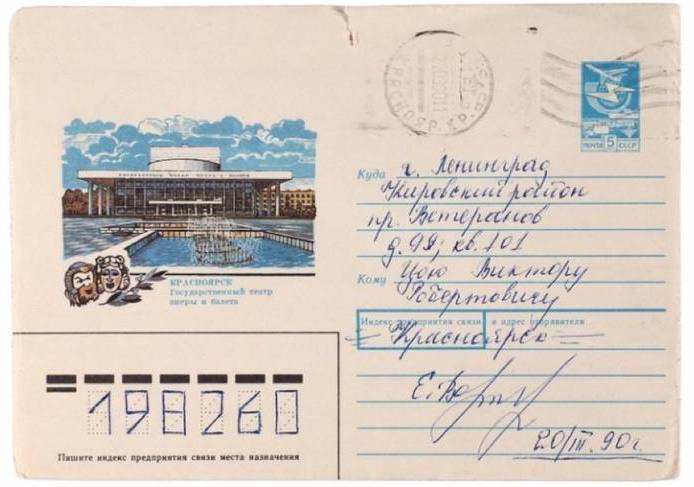 КРАСНОЯРСК
ПОЧТА 5 СССР
Куда г. Ленинград
Кировский район
пр. Ветеранов
д. 99; кв. 101
Кому Цою Виктору
Робертовичу
КРАСНОЯРСК
Государственный театр
оперы и балета
Индекс предприятия связи и адрес отправителя
Красноярск
20/III 90г.
198260
Пишите индекс предприятия связи места назначения